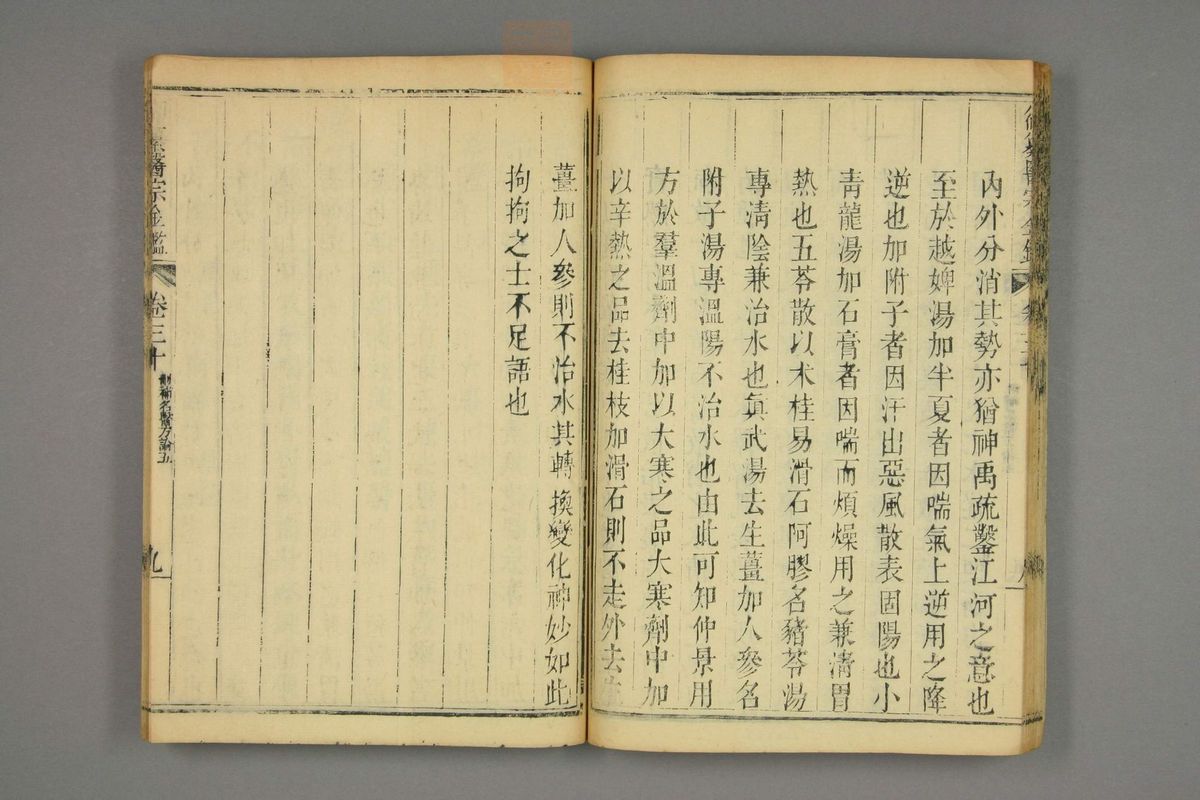 內外分消其勢亦猶神禹疏鑿江河之意也
至於越婢湯加半夏者因喘氣上逆用之降
逆也加附子者因汗出惡風散表固陽也小
青龍湯加石膏者因喘而煩燥用之兼清胃
熱也五苓散以朮桂易滑石阿膠名豬苓湯
專清陰兼治水也眞武湯去生薑加人參名
附子湯專溫陽不治水也由此可知仲景用
方於羣溫劑中加以大寒之品大寒劑中加
以辛熱之品去桂枝加滑石則不走外去生
薑加人參則不治水其轉換變化神妙如此
拘拘之士不足語也
醫宗金鑑
卷三十
刪補名醫方論五
九